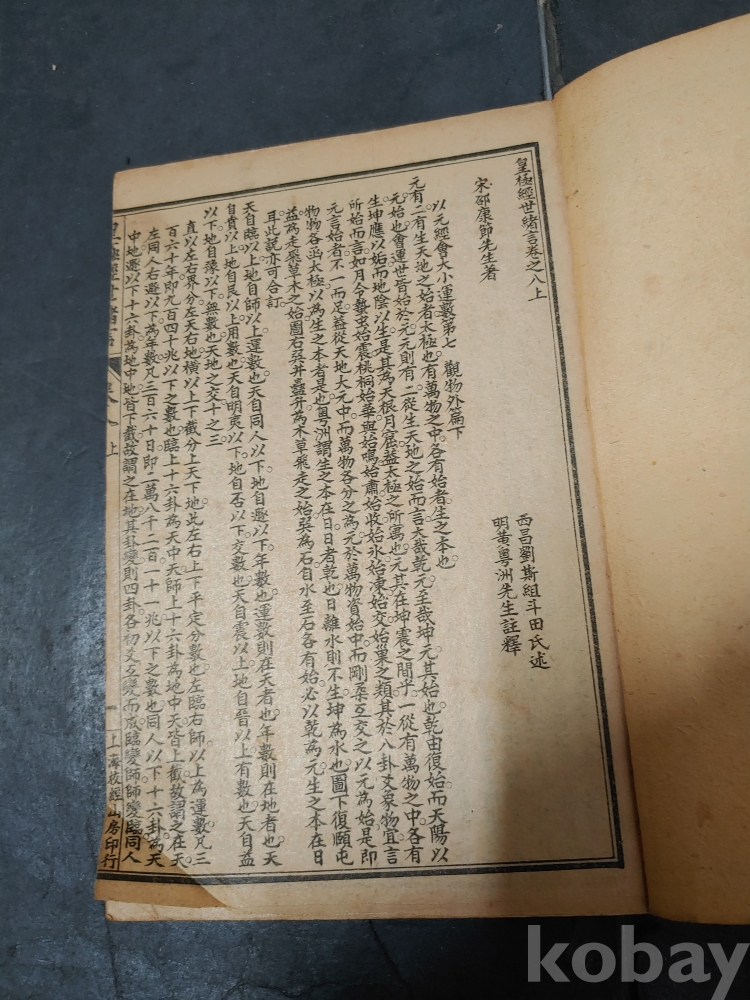 皇極經世緒言卷之八上
宋邵康節先生著
西昌劉斯組斗田氏述
明黃粵洲先生註釋
以元經會大小運數第七 觀物外篇下
元有二有生天地之始者太極也有萬物之中各有始者生之本也
元始也會運世皆始於元元則有二從生天地之始而言大哉乾元至哉坤元其始也乾由復始而天陽以
生坤應以姤而地陰以生是其為天根月窟益太極之所寓也元其在坤震之間乎一從有萬物之中各有
所始而言如月令蟄虫始震桃桐始華與始鳴始肅始收始氷始凍始交始巢之類其於八卦爻象物宜言
元言始者不一而足益從天地大元中而萬物各分之為元於萬物資始中而剛柔互交之以元為始是即
物物各函太極以為生之本者是也粵洲謂生之本在日日者乾也日離水則不生坤為水也圖下復頤屯
益為走飛草木之始圖右巽井蠱升為木草飛走之始巽為石自水至石各有始必以乾為元生之本在日
耳此說亦可合訂
天自臨以上地自師以上運數也天自同人以下地自遯以下年數也運數則在天者也年數則在地者也天
自賁以上地自艮以上用數也天自明夷以下地自否以下交數也天自震以上地自晉以上有數也天自益
以下地自豫以下無數也天地之交十之三
直以左右界分左天右地橫以上下截分上天下地此左右上下平定分數也左臨右師以上為運數凡三
百六十年即九百四十兆以下之數也臨上十六卦為天中天師上十六卦為地中天皆上截故謂之在天
左同人右遯以下為年數凡三百六十日即二萬八千二百一十一兆以下之數也同人以下十六卦為天
中地遯以下十六卦為地中地皆下截故謂之在地其卦變則四卦各初爻互變而成臨變師師變臨同人
皇極經世緒言 卷八上 一 上海校經山房印行
kobay